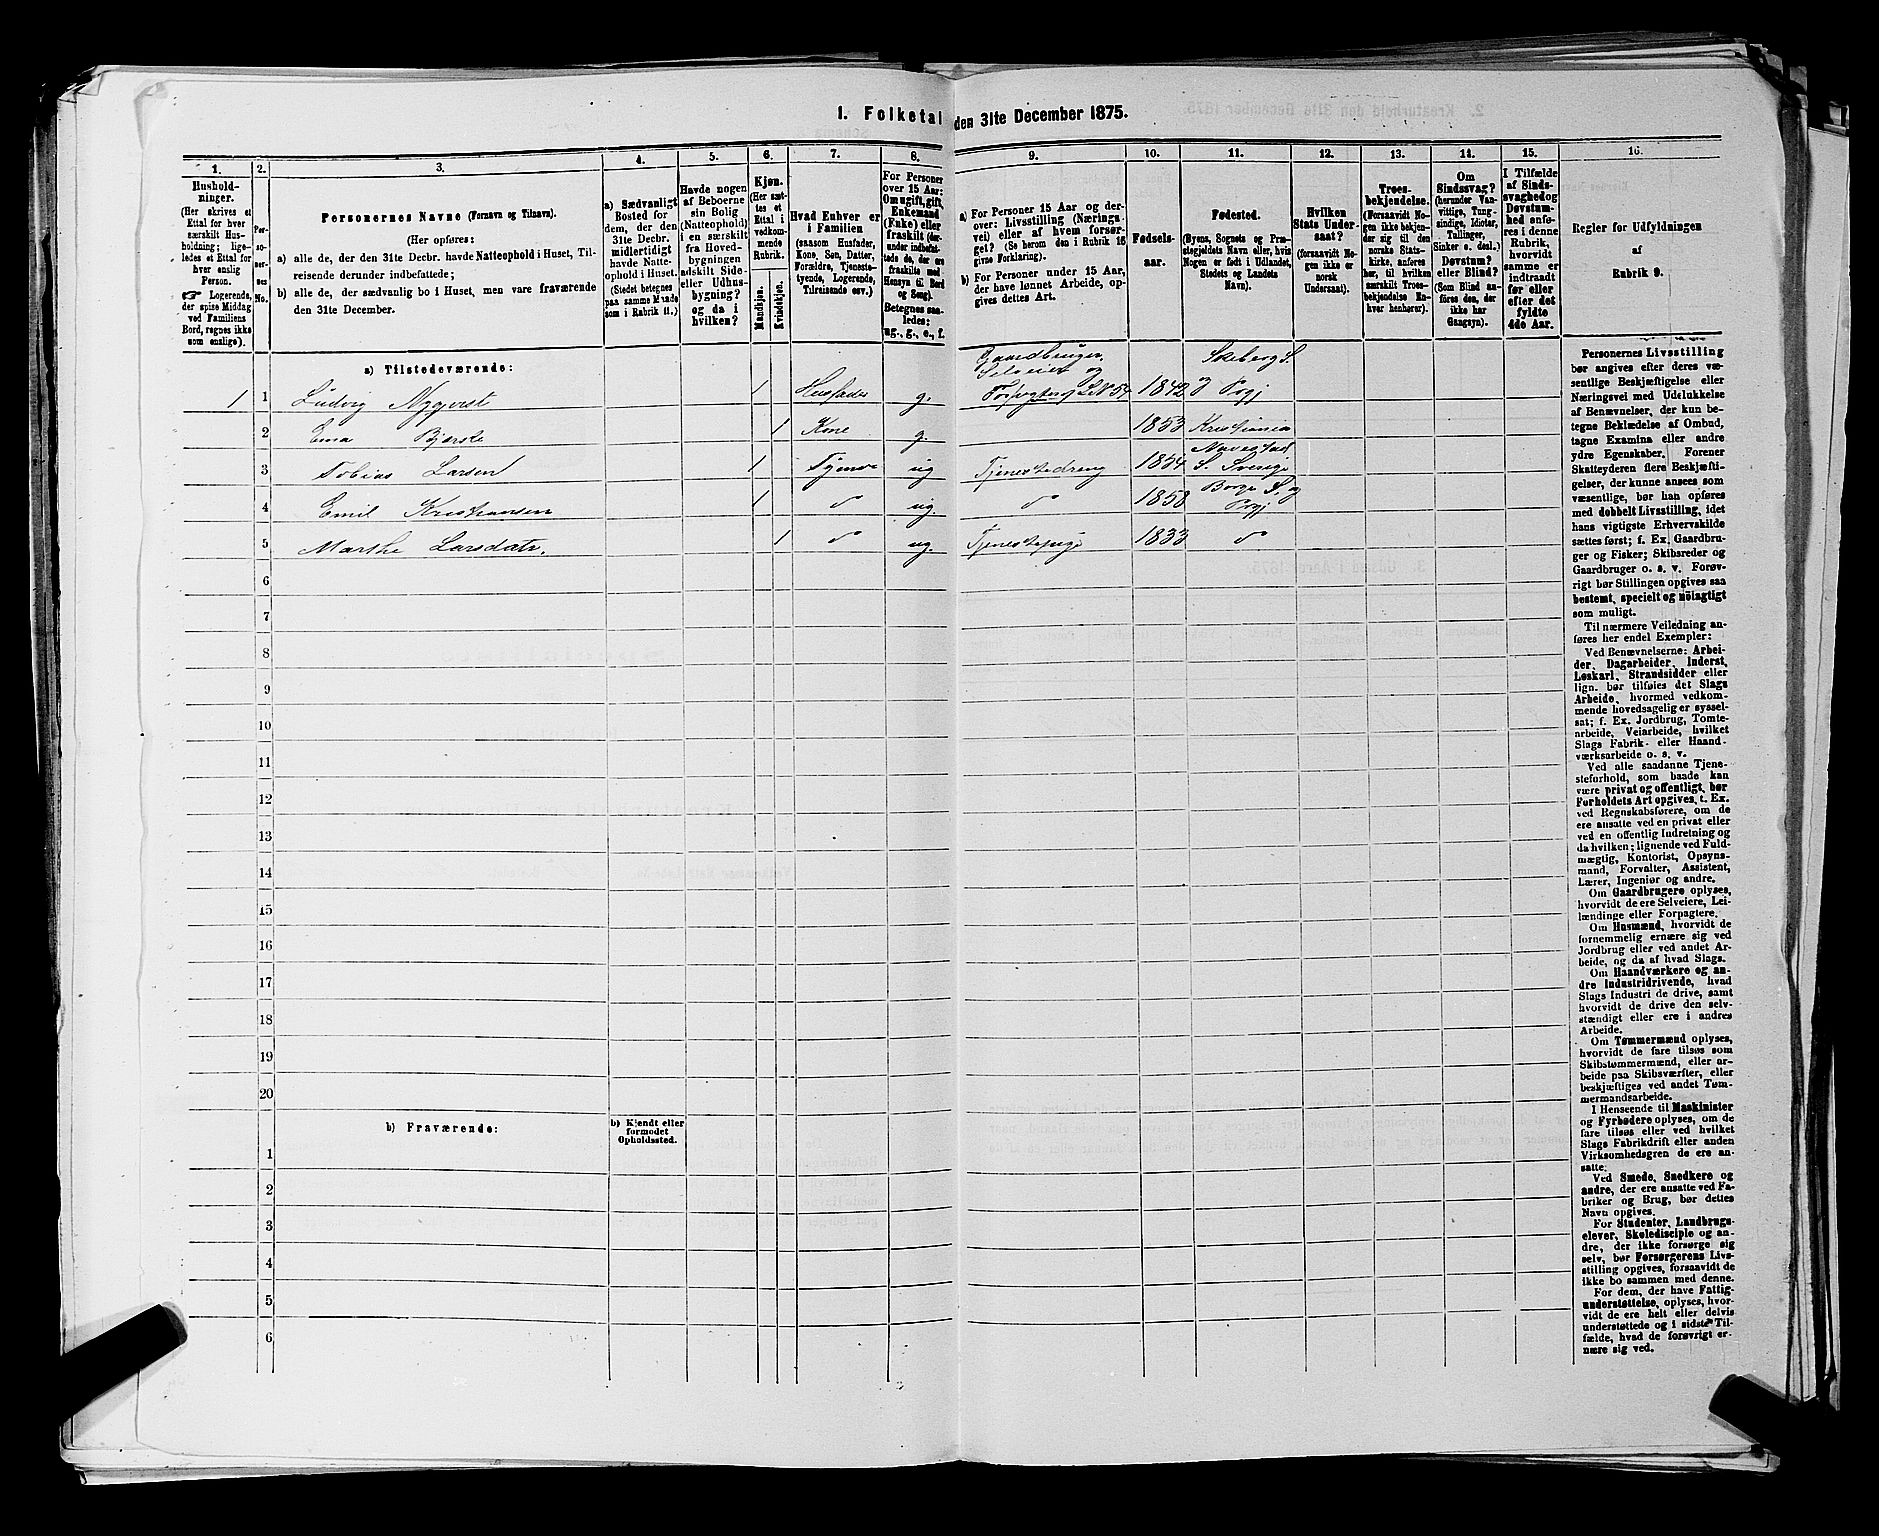 1. Folketal den 31te December 1875.
1.
2.
3.
4.
5.
6.
7.
8.
9.
10.
11.
12.
13.
14.
15.
16.
Hushold-
ninger.
(Her skrives et
Ettal for hver
særskilt Hus-
holdning; lige-
ledes et Ettal for
hver enslig
Person.
☞ Logerende,
der spise Middag
ved Familiens
Bord, regnes ikke
som enslige).
Per-
so-
ner-
nes
No.
Personernes Navne (Fornavn og Tilnavn).
(Her opføres:
a) alle de, der den 31te Decbr. havde Natteophold i Huset, Til-
reisende derunder indbefattede;
b) alle de, der sædvanlig bo i Huset, men vare fraværende
den 31te December.
a) Sædvanligt
Bosted for
dem, der den
31te Decbr.
midlertidigt
havde Natte-
ophold i Huset.
(Stedet betegnes
paa samme Maade
som i Rubrik 11.)
Havde nogen
af Beboerne
sin Bolig
(Natteophold)
i en særskilt
fra Hoved-
bygningen
adskilt Side-
eller Udhus-
bygning?
og da i
hvilken?
Kjøn.
(Her sæt-
tes et
Ettal i
vedkom-
mende
Rubrik.
Mandkjøn.
Kvindekjøn.
Hvad Enhver er
i Familien
(saasom Husfader,
Kone, Søn, Datter,
Forældre, Tjeneste-
tyende, Logerende,
Tilreisende osv.)
For Personer
over 15 Aar:
Om ugift, gift,
Enkemand
(Enke) eller
fraskilt (der-
under indbefat-
tede de, der ere
fraskilte med
Hensyn til Bord
og Seng).
Betegnes saa-
ledes:
ug., g., e., f.
a) For Personer 15 Aar og der-
over: Livsstilling (Nærings-
vei) eller af hvem forsør-
get? (Se herom den i Rubrik 16
givne Forklaring).
b) For Personer under 15 Aar,
der have lønnet Arbeide, op-
gives dettes Art.
Fødsels-
aar.
Fødested.
(Byens, Sognets og Præ-
stegjeldets Navn eller, hvis
Nogen er født i Udlandet,
Stedets og Landets
Navn).
Hvilken
Stats Under-
saat?
(forsaavidt No-
gen ikke er
norsk
Undersaat).
Troes-
bekjendelse.
(Forsaavidt No-
gen ikke bekjen-
der sig til den
norske Stats-
kirke, anføres
her, til hvilken
særskilt Troes-
bekjendelse En-
hver henhører).
Om
Sindssvag?
(herunder Van-
vittige, Tung-
sindige, Idioter,
Tullinger,
Sinker o. desl.)
Døvstum?
eller Blind?
(Som Blind an-
føres den, der
ikke har
Gangsyn).
I Tilfælde
af Sinds-
svaghed og
Døvstum-
hed anfø-
res i denne
Rubrik,
hvorvidt
samme er
indtraadt
før eller
efter det
fyldte
4de Aar.
Regler for Udfyldningen
af
Rubrik 9.
a) Tilstedeværende:
Gaardbruger,
Selveier og
Skeberg S.
1 1 Ludvig Nyqvist 1 Husfader g. L.N. 54 1842 og Prgj
2 Ema Bjerke 1 Kone g. 1853 Kristiania
3 Tobias Larsen 1 ug Tjenestedreng 1854 S. Sverige
Borge S. og
4 Emil Kristiansen 1 ug. 1858 Prgj
5 Marthe Larsdatr. 1 ug. Tjenestepige 1833
6
7
8
9
10
11
12
13
14
15
16
17
18
19
20
b) Fraværende:
b) Kjendt eller
formodet
Opholdssted.
1
2
3
4
5
6
Personernes Livsstilling
bør angives efter deres væ-
sentlige Beskjæftigelse eller
Næringsvei med Udelukkelse
af Benævnelser, der kun be-
tegne Beklædelse af Ombud,
tagne Examina eller andre
ydre Egenskaber. Forener
Skatteyderen flere Beskjæfti-
gelser, der kunne ansees som
væsentlige, bør han opføres
med dobbelt Livsstilling, idet
hans vigtigste Erhvervskilde
sættes først; f. Ex. Gaardbru-
ger og Fisker; Skibsreder og
Gaardbruger o. s. v. Forøv-
rigt bør Stillingen opgives saa
bestemt, specielt og nöiagtigt
som muligt.
Til nærmere Veiledning an-
føres her endel Exempler:
Ved Benævnelserne: Arbei-
der, Dagarbeider, Inderst,
Løskarl, Strandsidder eller
lign. bør tilføies det Slags
Arbeide, hvormed vedkom-
mende hovedsagelig er syssel-
sat; f. Ex. Jordbrug, Tomte-
arbeide, Veiarbeide, hvilket
Slags Fabrik- eller Haand-
værksarbeide o. s. v.
Ved alle saadanne Tjene-
steforhold, som baade kan
være privat og offentligt, bør
Forholdets Art opgives, t. Ex.
ved Regnskabsførere, om de
ere ansatte ved en privat eller
ved en offentlig Indretning og
da hvilken; lignende ved Fuld-
mægtig, Kontorist, Opsyns-
mand, Forvalter, Assistent,
Lærer, Ingeniør og andre.
Om Gaardbrugere oplyses,
hvorvidt de ere Selveiere, Lei-
lændinge eller Forpagtere.
Om Husmænd, hvorvidt de
fornemmelig ernære sig ved
Jordbrug eller ved andet Ar-
beide, og da af hvad Slags.
Om Haandværkere og an-
dre Industridrivende, hvad
Slags Industri de drive, samt
hvorvidt de drive den selv-
stændigt eller ere i andres
Arbeide.
Om Tømmermænd oplyses,
hvorvidt de fare tilsøs som
Skibstømmermænd, eller ar-
beide paa Skibsværfter, eller
beskjæftiges ved andet Tøm-
mermandsarbeide.
I Henseende til Maskinister
og Fyrbødere oplyses, om de
fare tilsøs eller ved hvilket
Slags Fabrikdrift eller anden
Virksomhedsgren de ere an-
satte.
Ved Smede, Snedkere og
andre, der ere ansatte ved Fa-
briker og Brug, bør dettes
Navn opgives.
For Studenter, Landbrugs-
elever, Skoledisciple og an-
dre, der ikke forsørge sig
selv, bør Forsørgerens Livs-
stilling opgives, forsaavidt de
ikke bo sammen med denne.
For dem, der have Fattig-
understøttelse, oplyses, hvor-
vidt de ere helt eller delvis
understøttede og i sidste Til-
fælde, hvad de forøvrigt er-
nære sig ved.